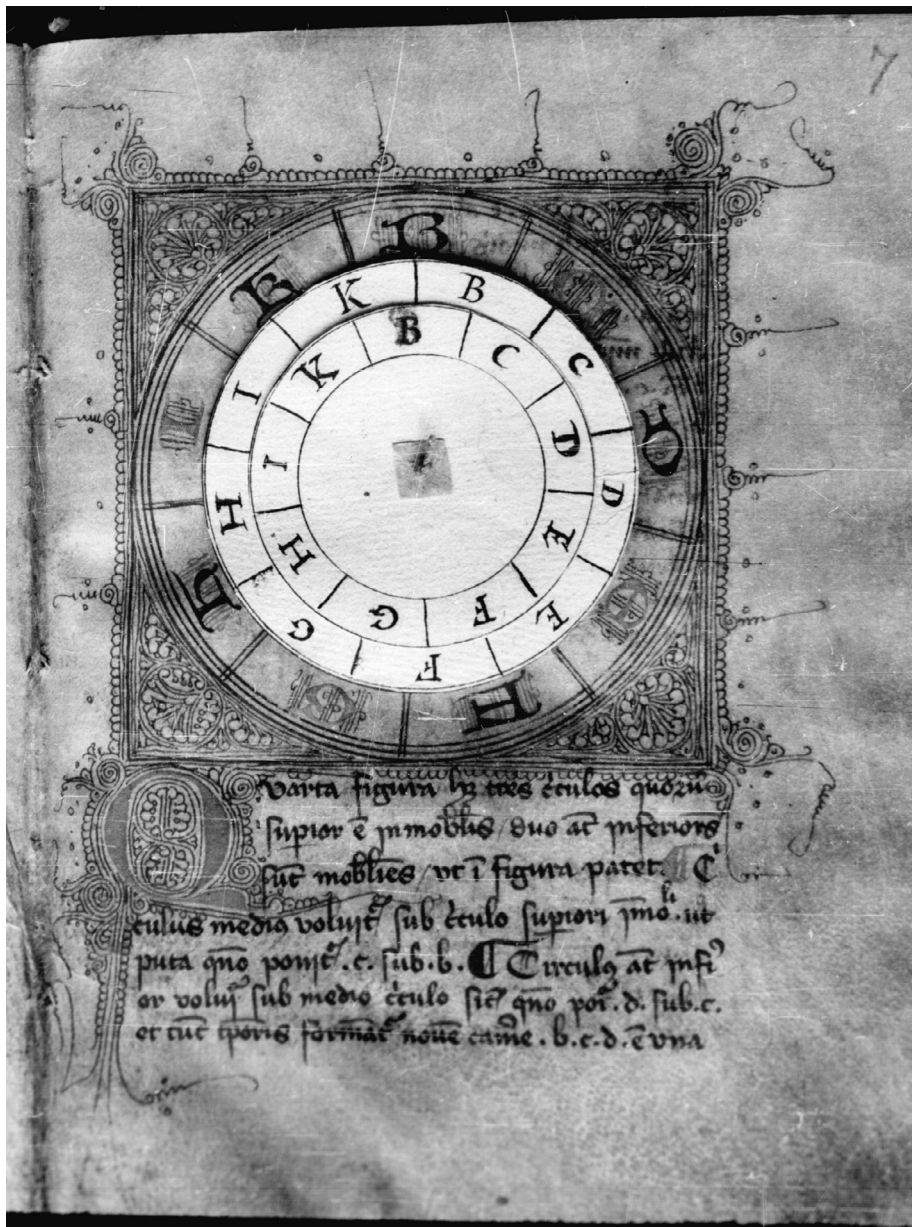 7
B C D E F G H I K
B C D E F G H I K
B C D E F G H I K
Quarta figura hꝫ tres c̓culos quorū
supior ē inmobłis / duo at̄ inferiors
sūt mobłes / ut ī figura patet. C̓
culus mediꝰ voluit᷑ sub c̓culo supiori īmo.li ut
puta qn̄o ponit᷑ .c. sub .b. ¶ Circulꝰ at̄ infi
or volui᷑ sub medio c̓culo sic̄ qn̄o poi᷑ .d. sub .c.
et tūc tp̄oris formāt᷑ nouē cam̓e . b.c.d. ē vna